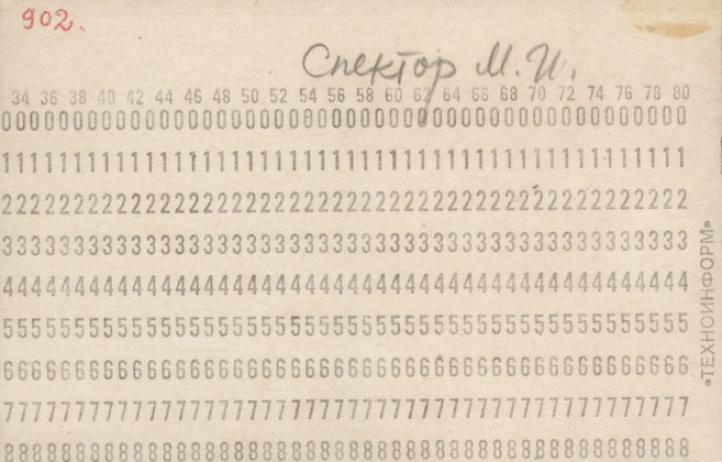 902.
Спектор М. И.
34 36 38 40 42 44 46 48 50 52 54 56 58 60 62 64 66 68 70 72 74 76 78 80
000000000000000000000000000000000000000000000000
111111111111111111111111111111111111111111111111
222222222222222222222222222222222222222222222222
333333333333333333333333333333333333333333333333
444444444444444444444444444444444444444444444444
555555555555555555555555555555555555555555555555
666666666666666666666666666666666666666666666666
777777777777777777777777777777777777777777777777
888888888888888888888888888888888888888888888888
«ТЕХНОИНФОРМ»